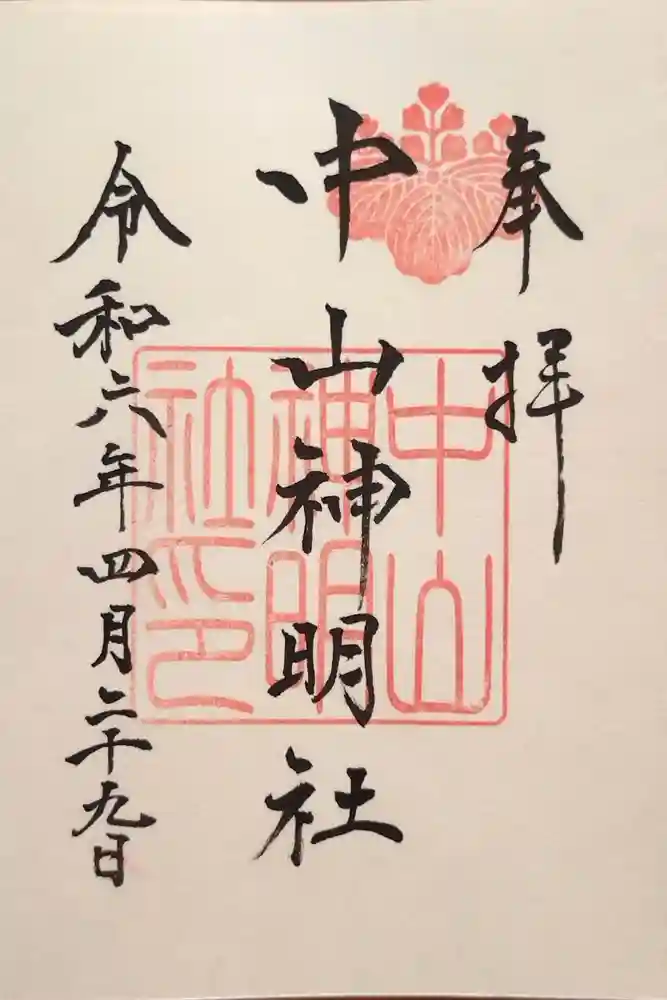 奉拝
中山神明社
中山神明社印
令和六年四月二十九日